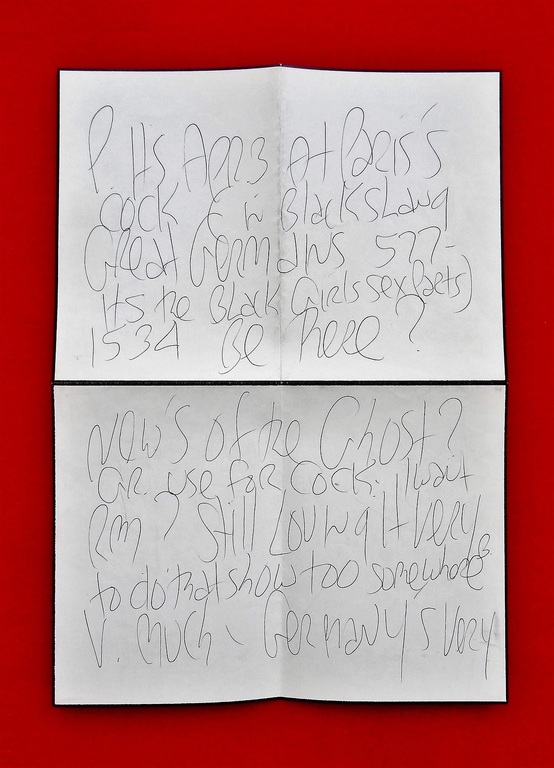 P. It's Apr 3 at Paris's
cock ( in Black slang
Great Germans 577-
its the Black Girls sex parts)
1534 Be here?
New's of the Ghost?
GR. use for cock. I want
Rm? Still Loving It Very
to do that show too somewhere
V. Much Germany's Very